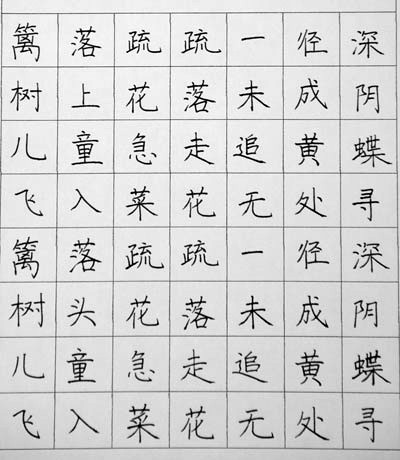 篱落疏疏一径深
树上花落未成阴
儿童急走追黄蝶
飞入菜花无处寻
篱落疏疏一径深
树头花落未成阴
儿童急走追黄蝶
飞入菜花无处寻